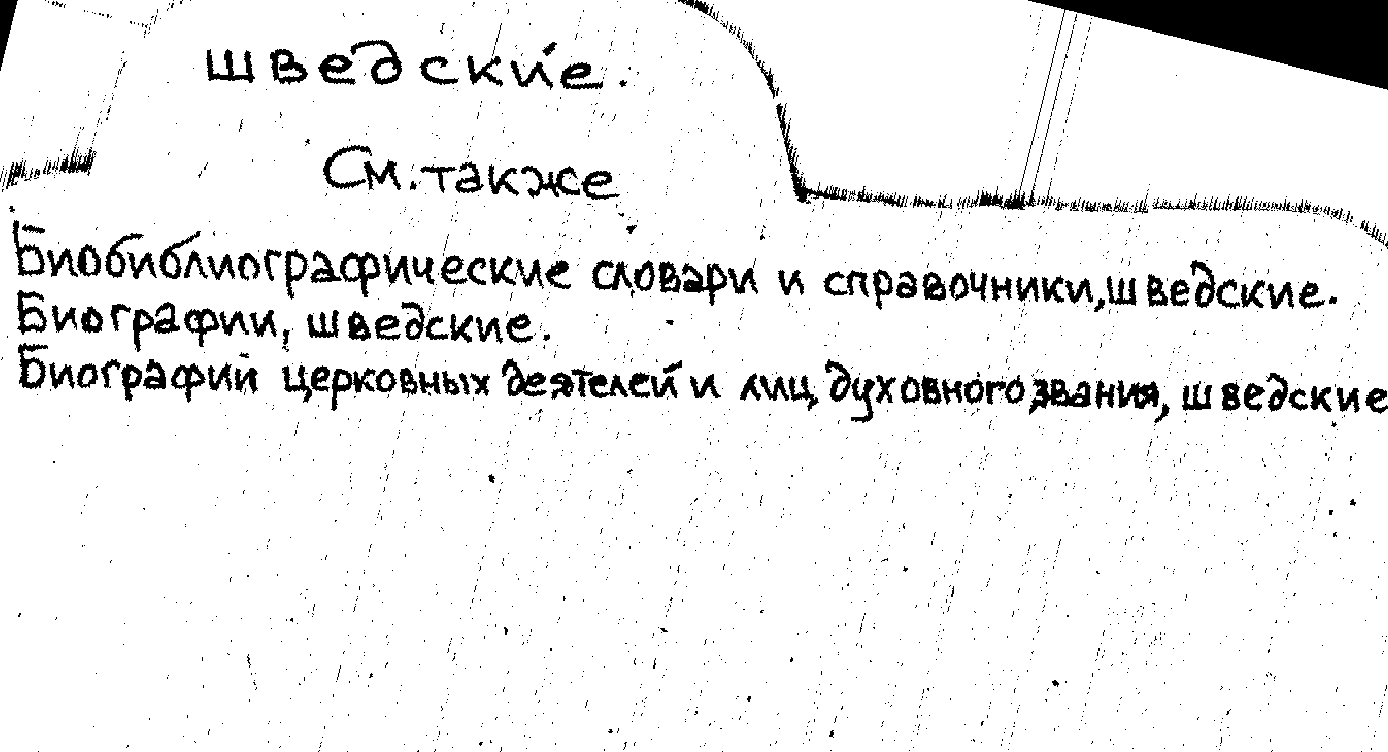 шведские.
См. также
Биобиблиографические словари и справочники, шведские.
Биографии, шведские.
Биографии церковных деятелей и лиц духовного звания, шведские